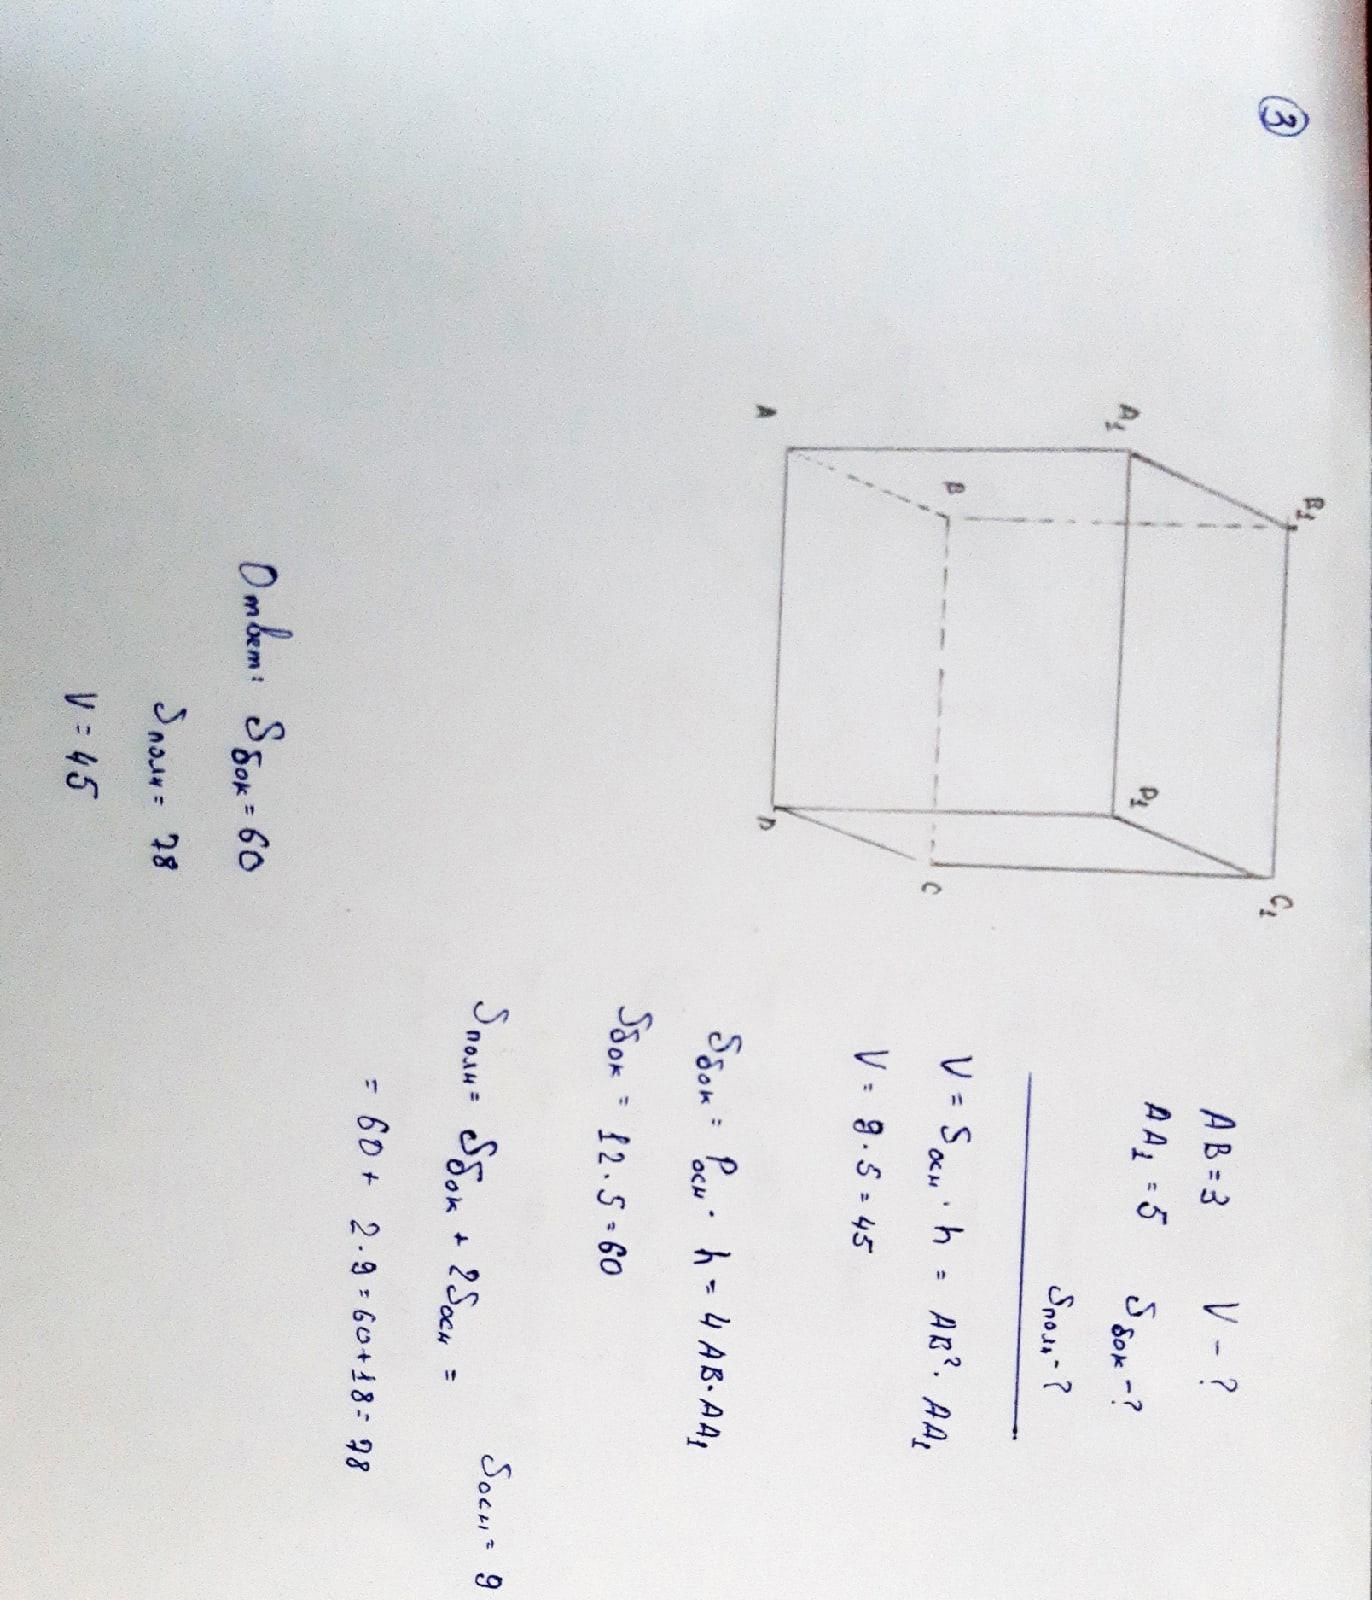 ③
B₁ C₁
A₁ D₁
B C
A D
AB=3 V-?
AA₁=5 Sбок-?
Sполн-?
V = Sосн · h = AB² · AA₁
V = 9 · 5 = 45
Sбок = Pосн · h = 4AB · AA₁
Sбок = 12 · 5 = 60
Sполн = Sбок + 2Sосн = Sосн = 9
= 60 + 2 · 9 = 60 + 18 = 78
Ответ: Sбок = 60
Sполн = 78
V = 45